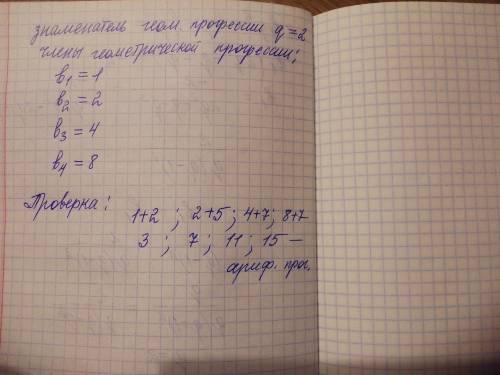 знаменатель геом. професии q = 2
члены геометрической професии:
b₁ = 1
b₂ = 2
b₃ = 4
b₄ = 8
Проверка:
1+2 ; 2+5 ; 4+7 ; 8+7
3 ; 7 ; 11 ; 15 —
ариф. прог.